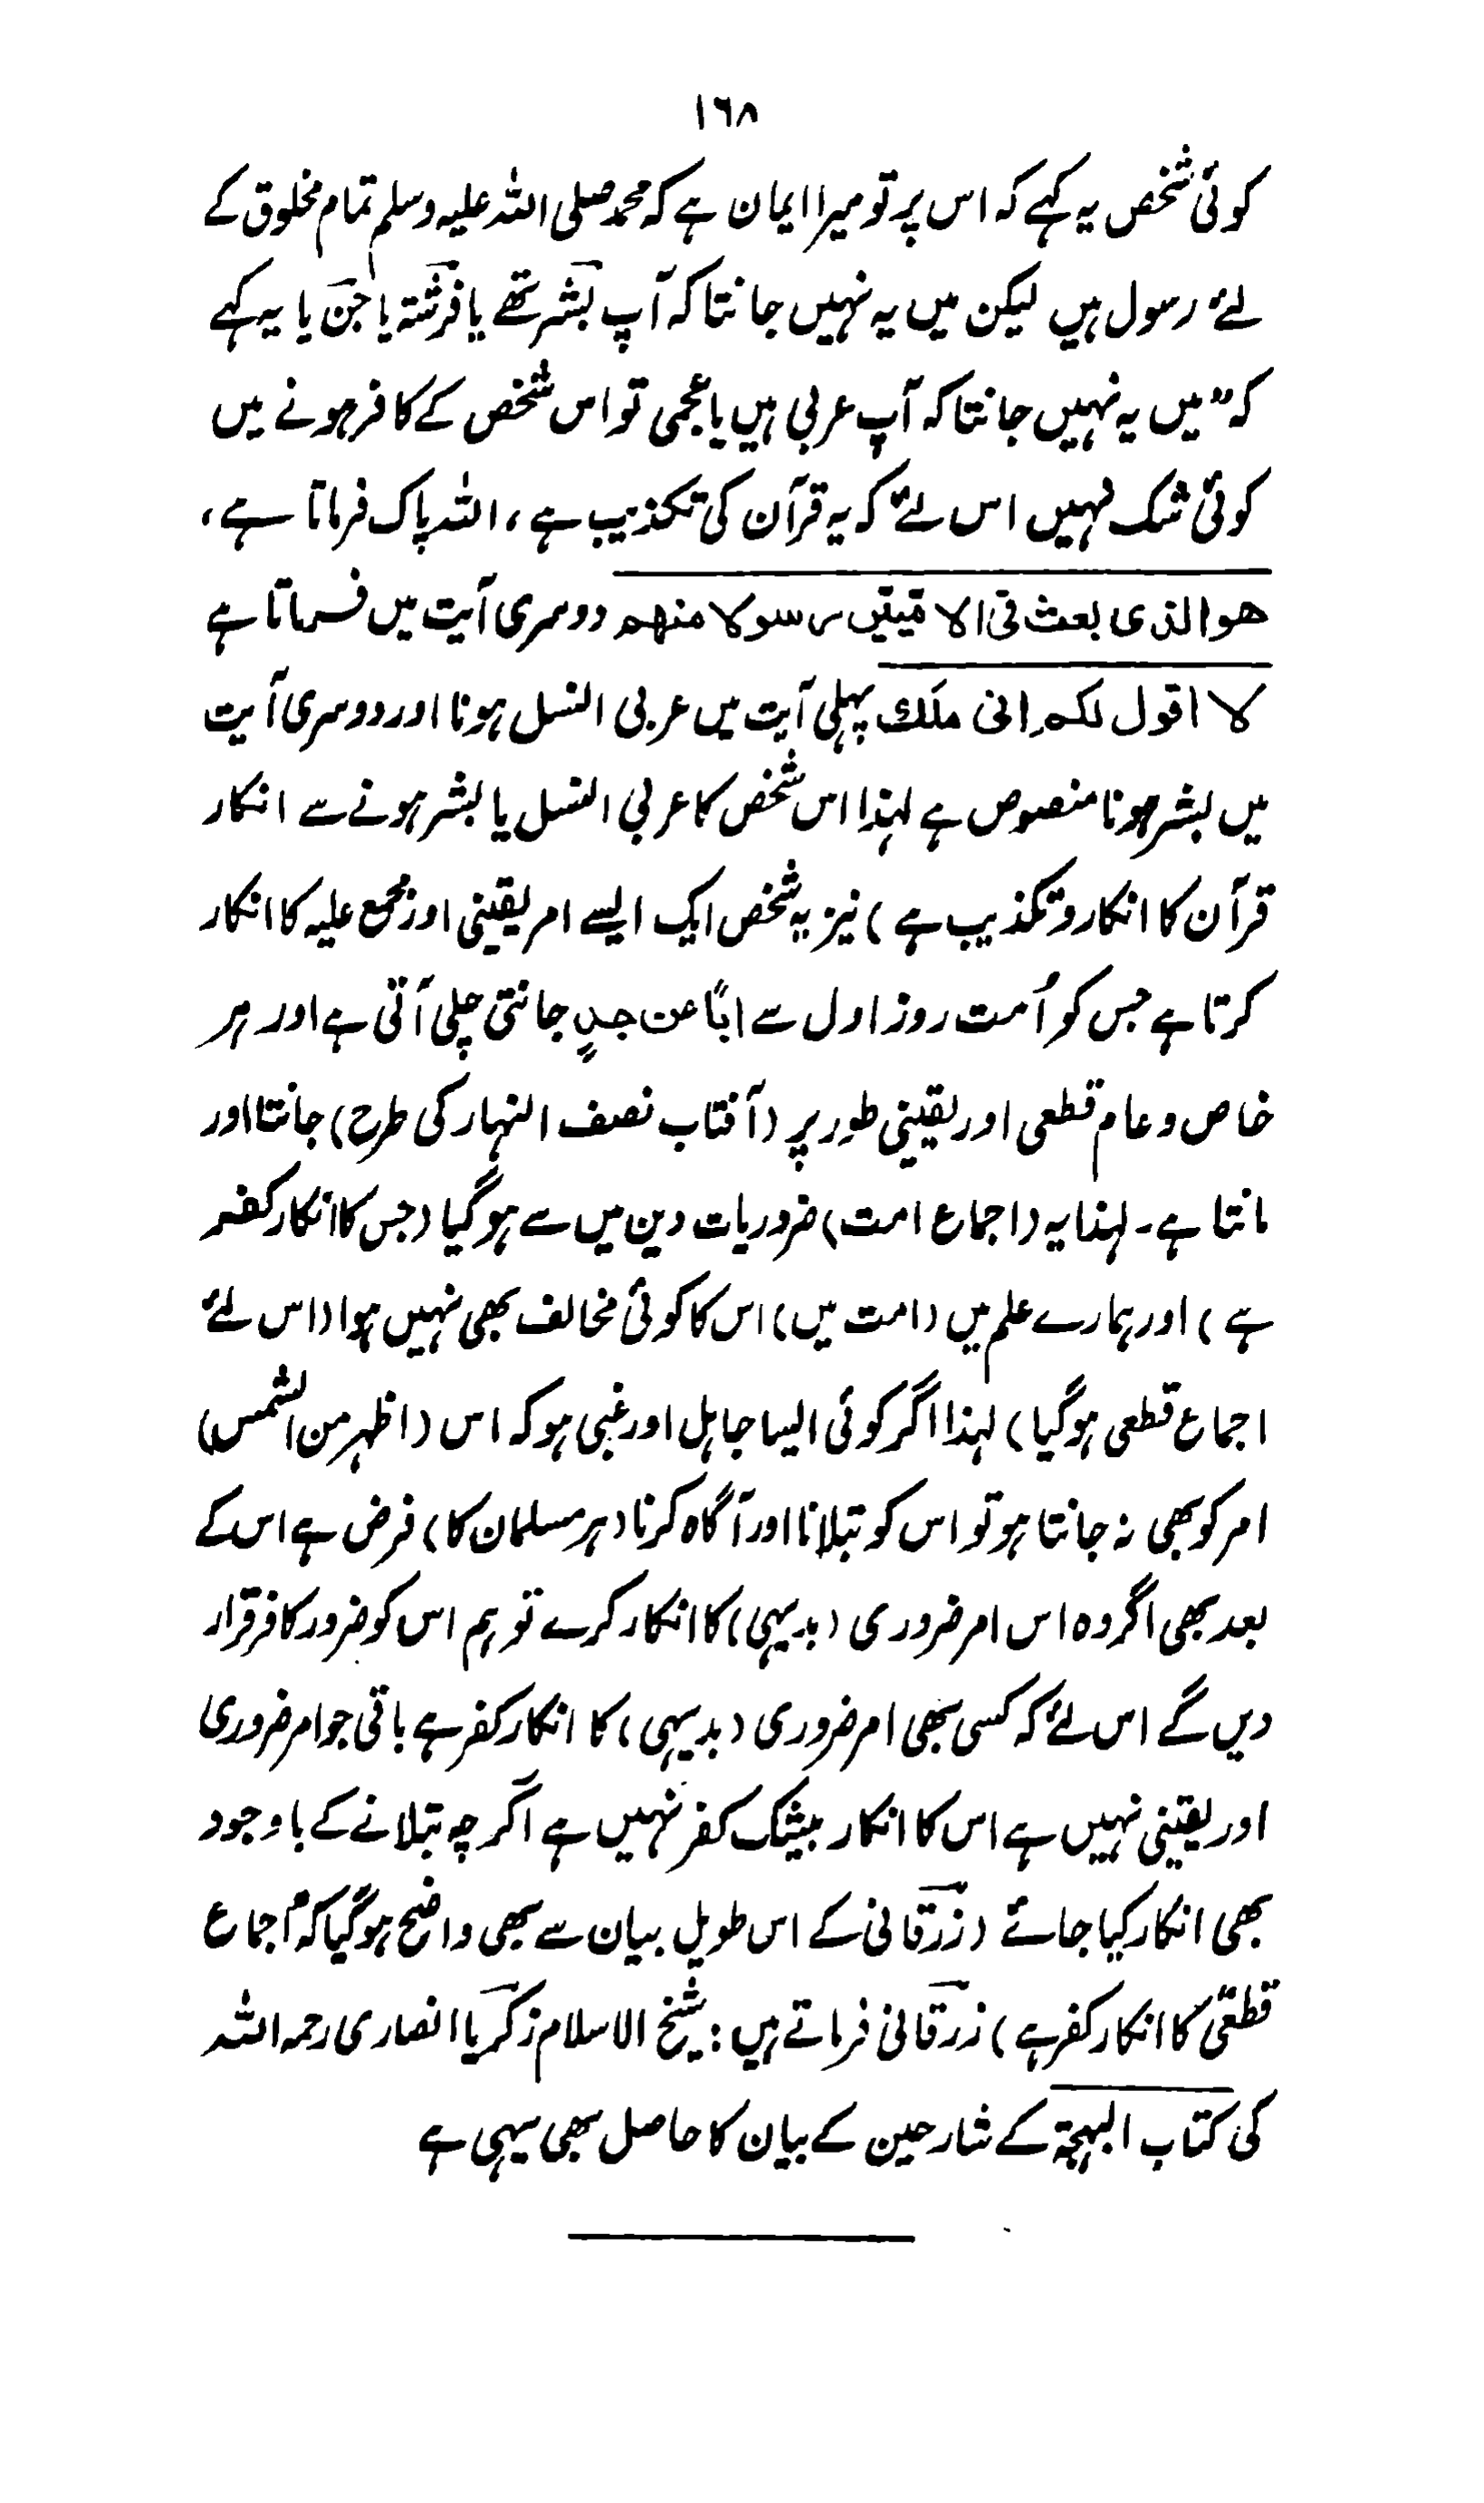 ۱۶۸
کوئی شخص یہ کہے کہ اس پر تو میرا ایمان ہے کہ محمد صلی اللہ علیہ وسلم تمام مخلوق کے
لئے رسول ہیں لیکن میں یہ نہیں جانتا کہ آپ بشر تھے یا فرشتہ یا جن یا یہ کہے
کہ "میں یہ نہیں جانتا کہ آپ عربی ہیں یا عجمی تو اس شخص کے کافر ہونے میں
کوئی شک نہیں اس لئے کہ یہ قرآن کی تکذیب ہے، اللہ پاک فرماتا ہے،
هو الذی بعث فی الامیین رسولا منهم دوسری آیت میں فرماتا ہے
لا اقول لکم انی ملک پہلی آیت میں عربی النسل ہونا اور دوسری آیت
میں بشر ہونا منصوص ہے لہذا اس شخص کا عربی النسل یا بشر ہونے سے انکار
قرآن کا انکار و تکذیب ہے) نیز یہ شخص ایک ایسے امر یقینی اور مجمع علیہ کا انکار
کرتا ہے جس کو اُمت روز اول سے اباً عن جدٍ جانتی چلی آتی ہے اور ہر
خاص و عام قطعی اور یقینی طور پر (آفتاب نصف النہار کی طرح) جانتا اور
مانتا ہے۔ لہذا یہ (اجماع امت) ضروریات دین میں سے ہو گیا (جس کا انکار کفر
ہے) اور ہمارے علم میں (امت میں) اس کا کوئی مخالف بھی نہیں ہوا (اس لئے
اجماع قطعی ہو گیا) لہذا اگر کوئی ایسا جاہل اور غبی ہو کہ اس (اظہر من الشمس)
امر کو بھی نہ جانتا ہو تو اس کو بتلانا اور آگاہ کرنا (ہر مسلمان کا) فرض ہے اس کے
بعد بھی اگر وہ اس امر ضروری (بدیہی) کا انکار کرے تو ہم اس کو ضرور کافر قرار
دیں گے اس لئے کہ کسی بھی امر ضروری (بدیہی) کا انکار کفر ہے باقی جو امر ضروری
اور یقینی نہیں ہے اس کا انکار بیشک کفر نہیں ہے اگرچہ بتلانے کے باوجود
بھی انکار کیا جائے (زرقانی کے اس طویل بیان سے بھی واضح ہو گیا کہ "اجماع
قطعی" کا انکار کفر ہے) زرقانی فرماتے ہیں: شیخ الاسلام زکریا انصاری رحمہ اللہ
کی کتاب البہجۃ کے شارحین کے بیان کا حاصل بھی یہی ہے